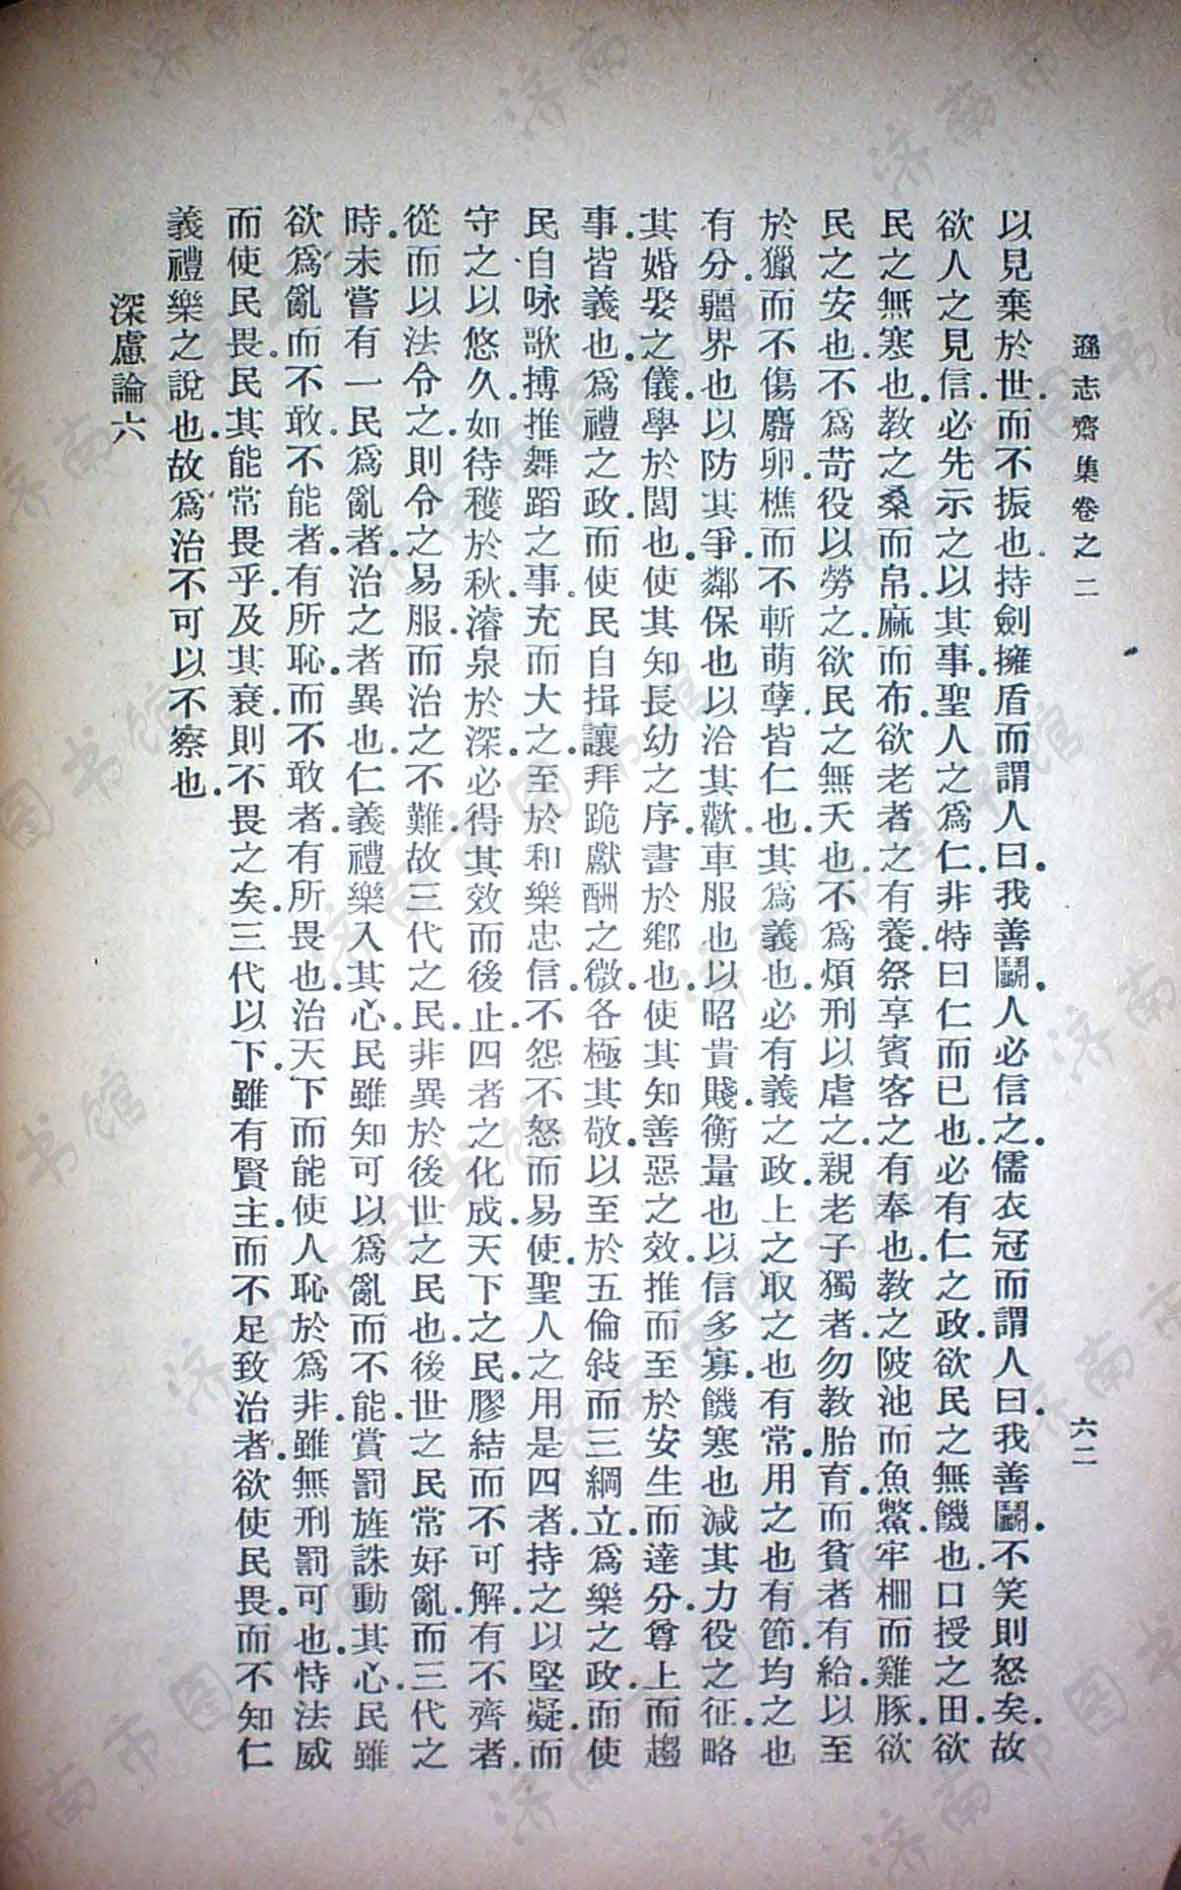 遜志齋集卷之二 六二
以見棄於世而不振也持劍擁盾而謂人曰我善鬭人必信之儒衣冠而謂人曰我善鬭不笑則怒矣故
欲人之見信必先示之以其事聖人之爲仁非特曰仁而已也必有仁之政欲民之無饑也口授之田欲
民之無寒也教之桑而帛麻而布欲老者之有養祭享賓客之有奉也教之陂池而魚鱉牢柵而雞豚欲
民之安也不爲苛役以勞之欲民之無夭也不爲煩刑以虐之親老子獨者勿教胎育而貧者有給以至
於獵而不傷麛卵樵而不斬萌孽皆仁也其爲義也必有義之政上之取之也有常用之也有節均之也
有分疆界也以防其爭鄰保也以洽其歡車服也以昭貴賤衡量也以信多寡饑寒也減其力役之征略
其婚娶之儀學於閭也使其知長幼之序書於鄉也使其知善惡之效推而至於安生而達分尊上而趨
事皆義也爲禮之政而使民自揖讓拜跪獻酬之微各極其敬以至於五倫敍而三綱立爲樂之政而使
民自咏歌搏推舞蹈之事充而大之至於和樂忠信不怨不怒而易使聖人之用是四者持之以堅凝而
守之以悠久如待穫於秋濬泉於深必得其效而後止四者之化成天下之民膠結而不可解有不齊者
從而以法令之則令之易服而治之不難故三代之民非異於後世之民也後世之民常好亂而三代之
時未嘗有一民爲亂者治之者異也仁義禮樂入其心民雖知可以爲亂而不能賞罰旌誅動其心民雖
欲爲亂而不敢不能者有所恥而不敢者有所畏也治天下而能使人恥於爲非雖無刑罰可也恃法威
而使民畏民其能常畏乎及其衰則不畏之矣三代以下雖有賢主而不足致治者欲使民畏而不知仁
義禮樂之說也故爲治不可以不察也
深慮論六
济南市图书馆